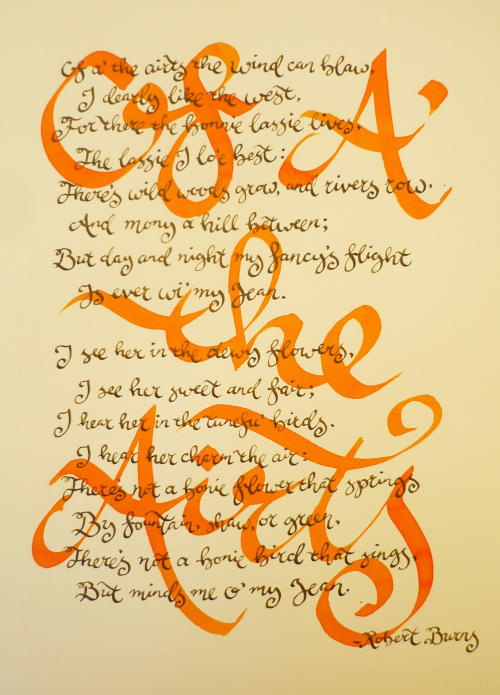 Of A'
the
Airts
Of a' the airts the wind can blaw,
I dearly like the west,
For there the bonnie lassie lives,
The lassie I lo'e best:
There's wild woods grow, and rivers row,
And mony a hill between;
But day and night my fancy's flight
Is ever wi' my Jean.
I see her in the dewy flowers,
I see her sweet and fair;
I hear her in the tunefu' birds,
I hear her charm the air:
There's not a bonie flower that springs
By fountain, shaw, or green,
There's not a bonie bird that sings,
But minds me o' my Jean.
-Robert Burns